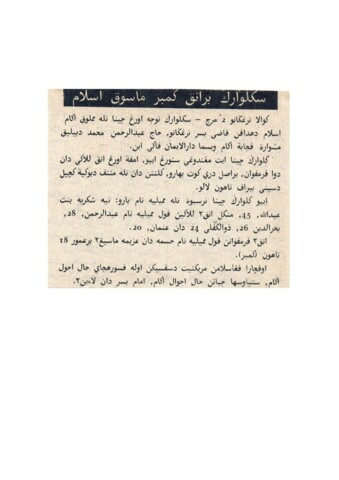 سکلوارݢ برانق کمبر ماسوق اسلام
کوالا ترڠݢانو 2 مرچ – سکلوارݢ توجه اورڠ چينا تله مملوق اݢام
اسلام دهدافن قاضي بسر ترڠݢانو, حاج عبدالرحمن محمد دبيليق
مشوارة فجابة اݢام ويسما دارالايمان فاݢي اين.
کلوارݢ چينا ايت مڠندوڠي ستورڠ ايبو, امفة اورڠ انق للاکي دان
دوا فرمفوان, براصل دري کوت بهارو, کلنتن دان تله منتف دبوکيت کچيل
دسيني بيراف تاهون لالو.
ايبو کلوارݢ چينا ترسبوة تله ممیليه نام بارو: نيه شکريه بنت
عبدالله, 45, منکل انق٢ للاکين فول ممیليه نام عبدالرحمن, 28,
بحرالدين 26, ذوالکفلي 24 دان عثمان, 20.
انق٢ فرمفوانن فول ممیليه نام حسمه دان عزيمه ماسيڠ٢ برعمور 18
تاهون (کمبر).
اوفچارا فڠاسلامن مريکئيت دسقسيکن اوله فسورهجاي حال احوال
اݢام, ستياوسها جباتن حال احوال اݢام, امام بسر دان لاءين٢.